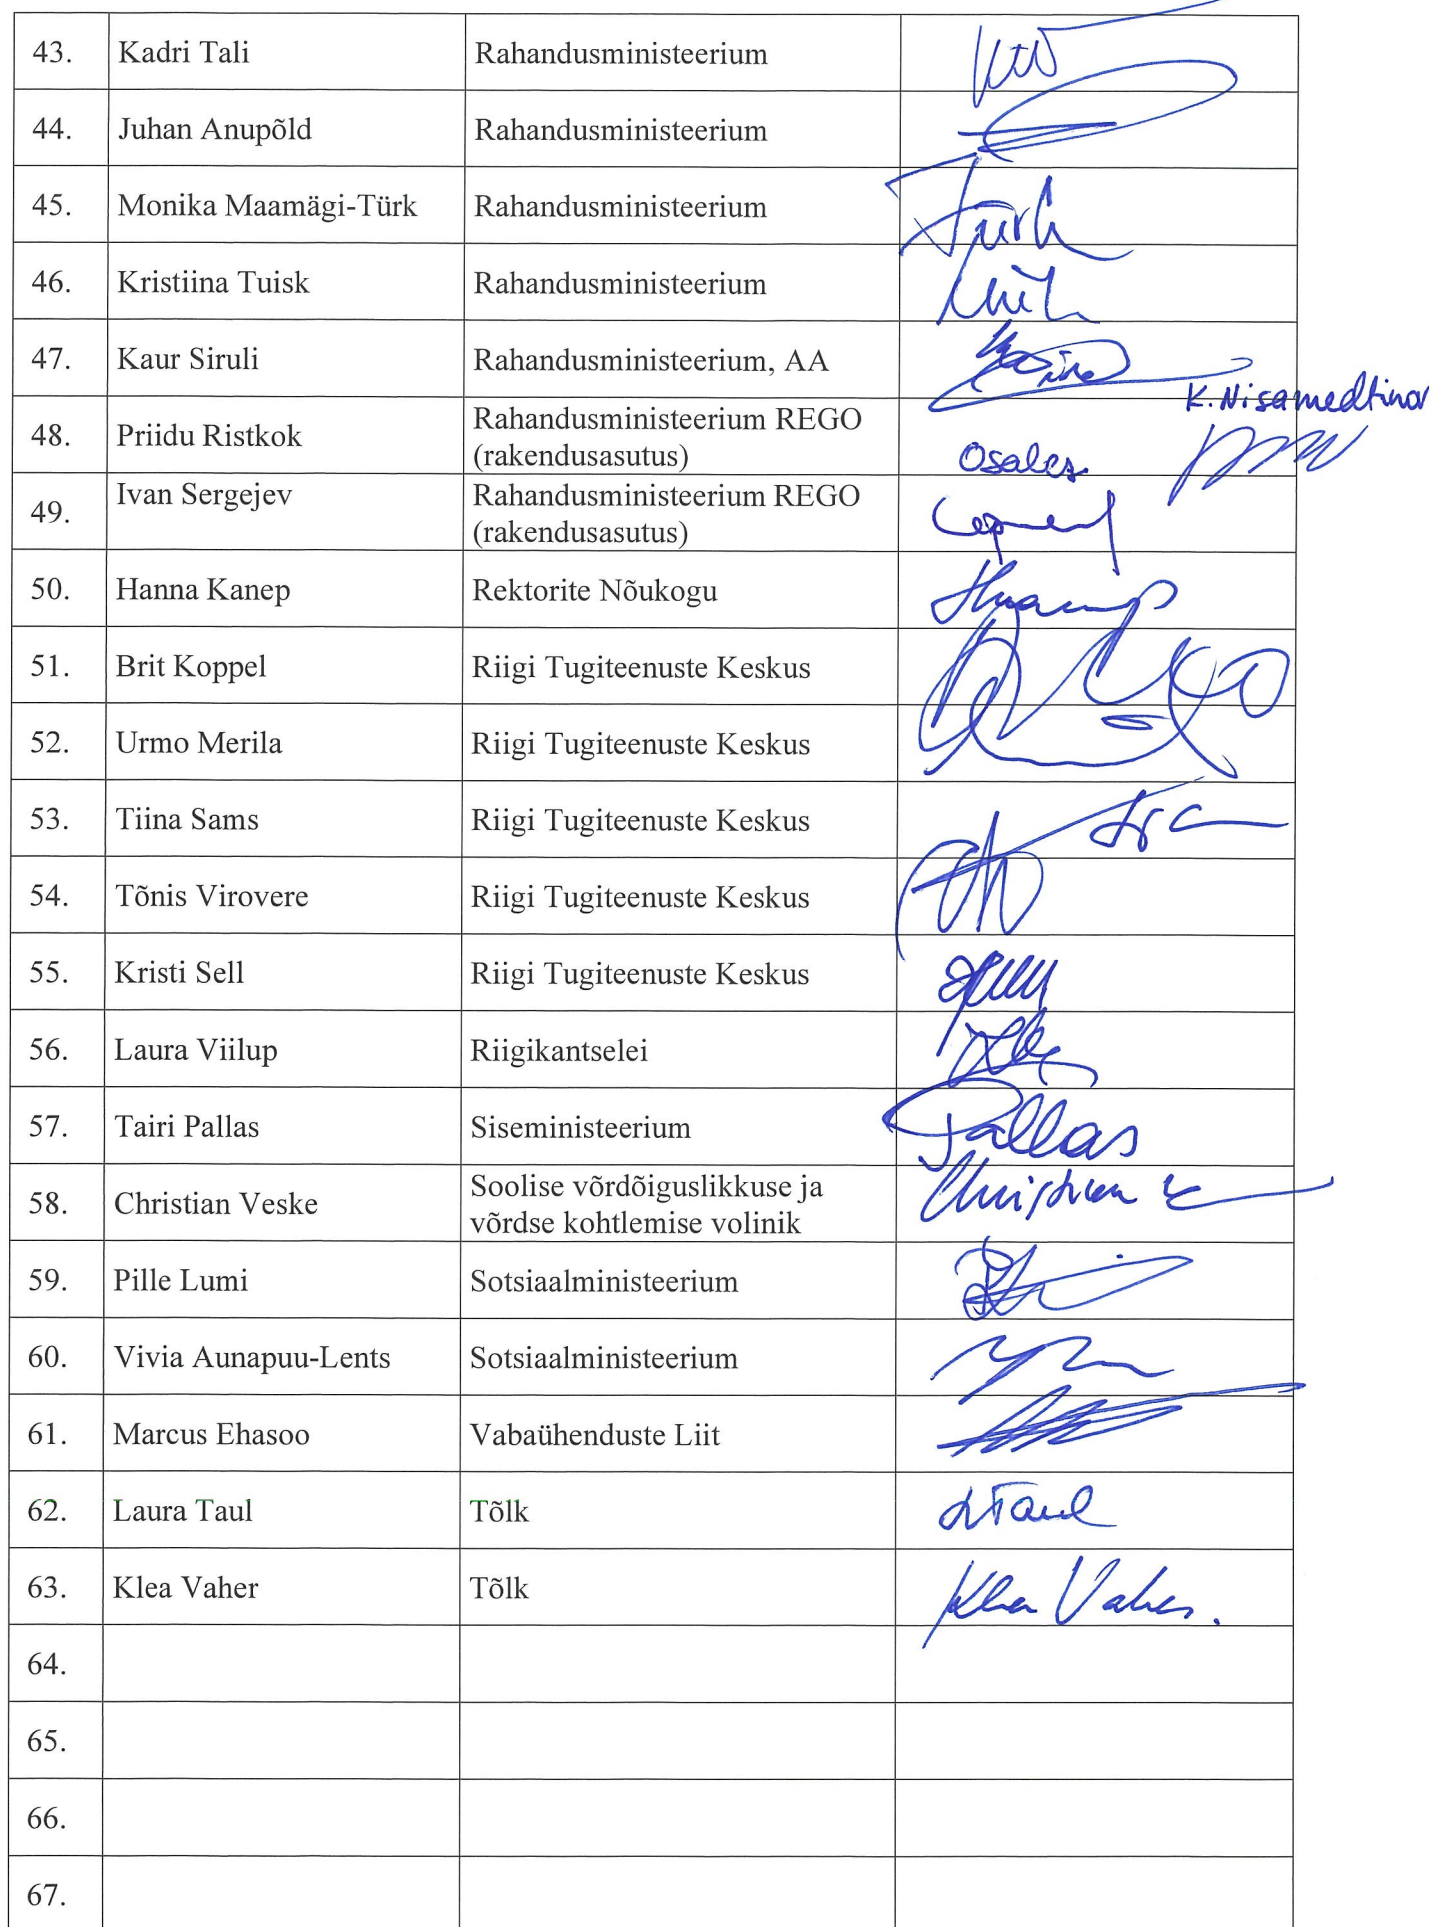 43. Kadri Tali Rahandusministeerium
44. Juhan Anupõld Rahandusministeerium
45. Monika Maamägi-Türk Rahandusministeerium Türk
46. Kristiina Tuisk Rahandusministeerium
47. Kaur Siruli Rahandusministeerium, AA
K. Nisamedtinov
48. Priidu Ristkok Rahandusministeerium REGO
(rakendusasutus) Osales
49. Ivan Sergejev Rahandusministeerium REGO
(rakendusasutus)
50. Hanna Kanep Rektorite Nõukogu
51. Brit Koppel Riigi Tugiteenuste Keskus
52. Urmo Merila Riigi Tugiteenuste Keskus
53. Tiina Sams Riigi Tugiteenuste Keskus
54. Tõnis Virovere Riigi Tugiteenuste Keskus
55. Kristi Sell Riigi Tugiteenuste Keskus
56. Laura Viilup Riigikantselei
57. Tairi Pallas Siseministeerium Pallas
58. Christian Veske Soolise võrdõiguslikkuse ja
võrdse kohtlemise volinik Christian
59. Pille Lumi Sotsiaalministeerium
60. Vivia Aunapuu-Lents Sotsiaalministeerium
61. Marcus Ehasoo Vabaühenduste Liit
62. Laura Taul Tõlk LTaul
63. Klea Vaher Tõlk Klea Vaher.
64.
65.
66.
67.